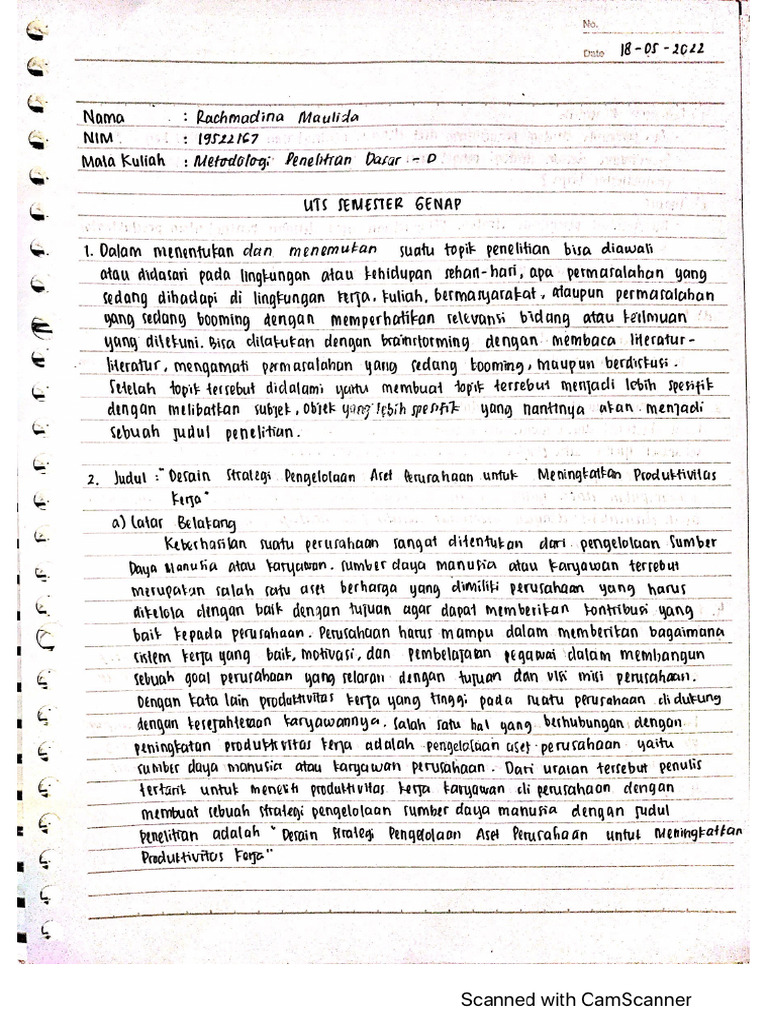 No.
Date 18-05-2022
Nama : Rachmadina Maulida
NIM : 19522167
Mata Kuliah : Metodologi Penelitian Dasar - D
UTS SEMESTER GENAP
1. Dalam menentukan dan menemukan suatu topik penelitian bisa diawali
atau didasari pada lingkungan atau kehidupan sehari-hari, apa permasalahan yang
sedang dihadapi di lingkungan kerja, kuliah, bermasyarakat, ataupun permasalahan
yang sedang booming dengan memperhatikan relevansi bidang atau keilmuan
yang ditekuni. Bisa dilakukan dengan brainstorming dengan membaca literatur-
literatur, mengamati permasalahan yang sedang booming, maupun berdiskusi.
Setelah topik tersebut didalami yaitu membuat topik tersebut menjadi lebih spesifik
dengan melibatkan subjek, objek yang lebih spesifik yang nantinya akan menjadi
sebuah judul penelitian.
2. Judul : "Desain Strategi Pengelolaan Aset Perusahaan untuk Meningkatkan Produktivitas
Kerja"
a) Latar Belakang
Keberhasilan suatu perusahaan sangat ditentukan dari pengelolaan Sumber
Daya Manusia atau karyawan. sumber daya manusia atau karyawan tersebut
merupakan salah satu aset berharga yang dimiliki perusahaan yang harus
dikelola dengan baik dengan tujuan agar dapat memberikan kontribusi yang
baik kepada perusahaan. Perusahaan harus mampu dalam memberikan bagaimana
sistem kerja yang baik, motivasi, dan pembelajaran pegawai dalam membangun
sebuah goal perusahaan yang selaran dengan tujuan dan visi misi perusahaan.
Dengan kata lain produktivitas kerja yang tinggi pada suatu perusahaan didukung
dengan kesejahteraan karyawannya. Salah satu hal yang berhubungan dengan
peningkatan produktivitas kerja adalah pengelolaan aset perusahaan yaitu
sumber daya manusia atau karyawan perusahaan. Dari uraian tersebut penulis
tertarik untuk meneliti produktivitas kerja karyawan di perusahaan dengan
membuat sebuah strategi pengelolaan sumber daya manusia dengan judul
penelitian adalah "Desain Strategi Pengelolaan Aset Perusahaan untuk Meningkatkan
Produktivitas Kerja"
Scanned with CamScanner